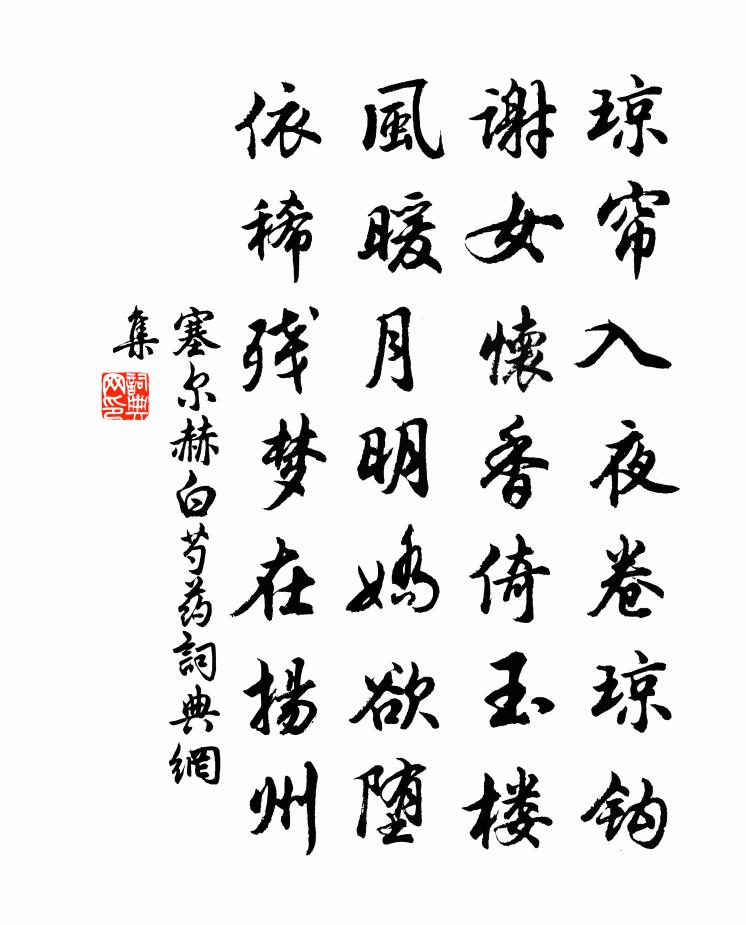 琼帘入夜卷琼钩
谢女懷香倚玉楼
風暖月明嬌欲堕
依稀残梦在揚州
塞尔赫白芍药詞典網
集
詞典网印